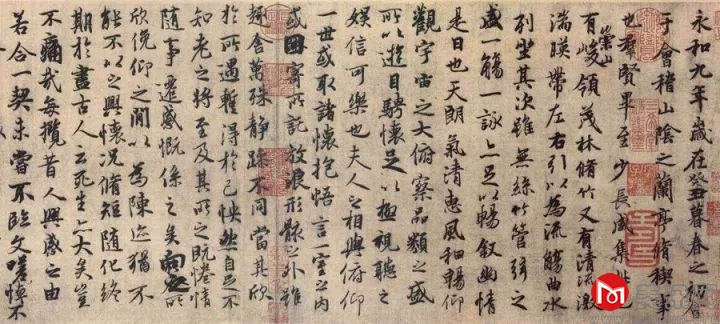 永和九年歲在癸丑暮春之初會
于會稽山陰之蘭亭脩稧事
也羣賢畢至少長咸集此
有崇山峻領茂林脩竹又有清流激
湍暎帶左右引以為流觴曲水
列坐其次雖無絲竹管弦之
盛一觴一詠亦足以暢敘幽情
是日也天朗氣清惠風和暢仰
觀宇宙之大俯察品類之盛
所以遊目騁懷足以極視聽之
娛信可樂也夫人之相與俯仰
一世或取諸懷抱悟言一室之內
或因寄所託放浪形骸之外雖
趣舍萬殊靜躁不同當其欣
於所遇暫得於己怏然自足不
知老之將至及其所之既惓情
隨事遷感慨係之矣向之所
欣俛仰之閒以為陳迹猶不
能不以之興懷況脩短隨化終
期於盡古人云死生亦大矣豈
不痛哉每攬昔人興感之由
若合一契未嘗不臨文嗟悼不
M